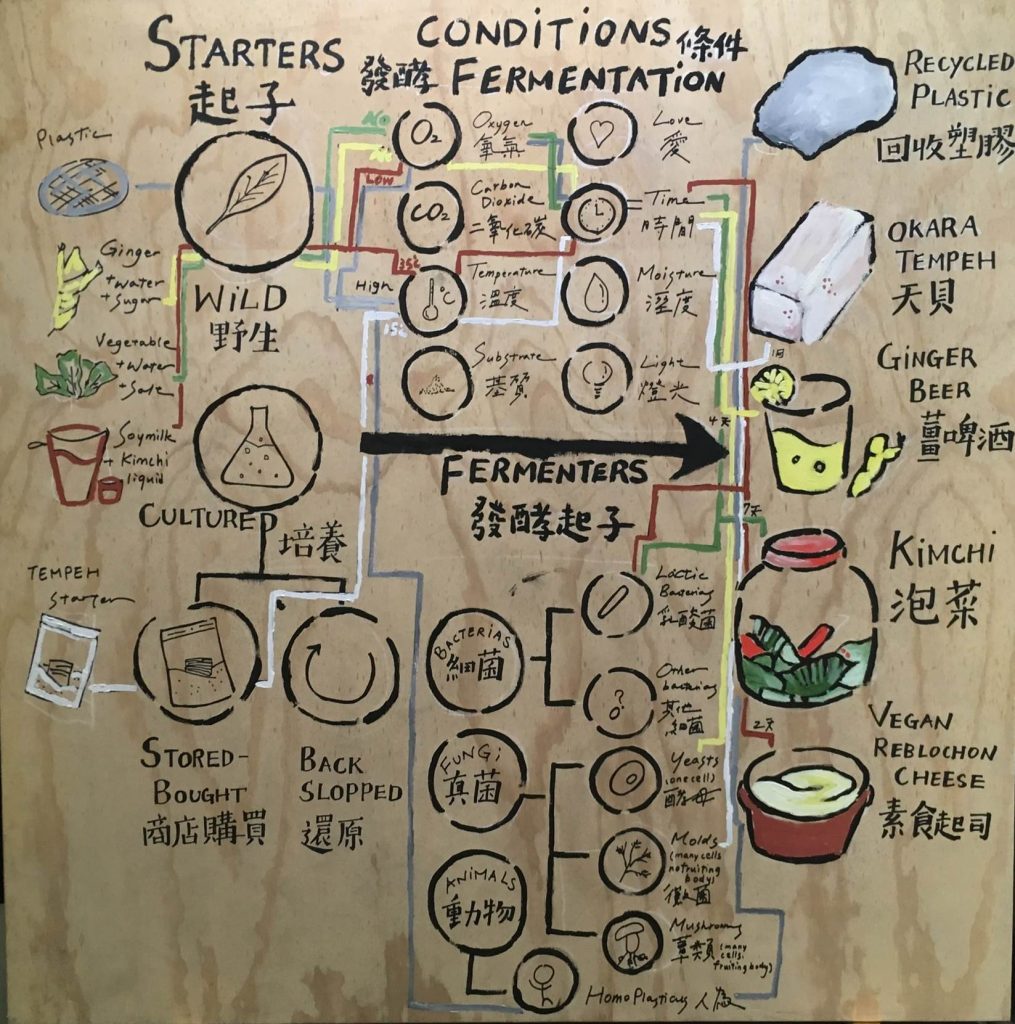 STARTERS
起子
CONDITIONS 條件
發酵 FERMENTATION
Plastic
Ginger
+ water
+ Sugar
Vegetable
+ Water
+ Salt
Soymilk
+ Kimchi
liquid
WILD
野生
CULTURED
培養
TEMPEH
Starter
STORED-
BOUGHT
商店購買
BACK
SLOPPED
還原
NO
LOW
O2
Oxygen
氧氣
CO2
Carbon
Dioxide
二氧化碳
35℃
High
15℃
°C
Temperature
溫度
Substrate
基質
Love
愛
Time
時間
Moisture
溼度
Light
燈光
FERMENTERS
發酵起子
BACTERIAS
細菌
FUNGI
真菌
ANIMALS
動物
Lactic
Bacterias
乳酸菌
?
Other
bacterias
其他
細菌
Yeasts
(one cell)
酵母
Molds
(many cells
no fruiting
body)
Mushrooms
(many
cells,
fruiting body)
Homo Plasticus
RECYCLED
PLASTIC
回收塑膠
OKARA
TEMPEH
天貝
GINGER
BEER
薑啤酒
4天
7天
KIMCHI
泡菜
2天
VEGAN
REBLOCHON
CHEESE
素食起司